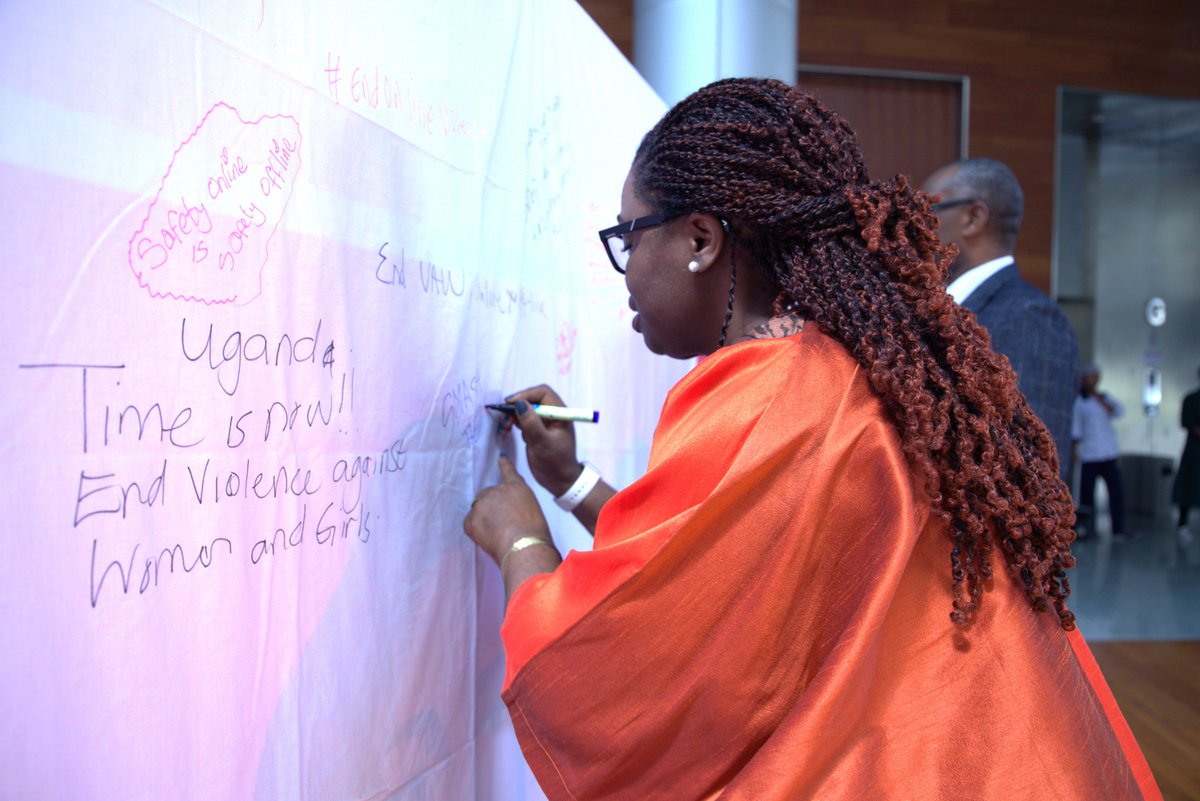 # End Online Violence
Safety online
is
safety offline
End VAW
Uganda
Time is now!!
End Violence against
Women and Girls.